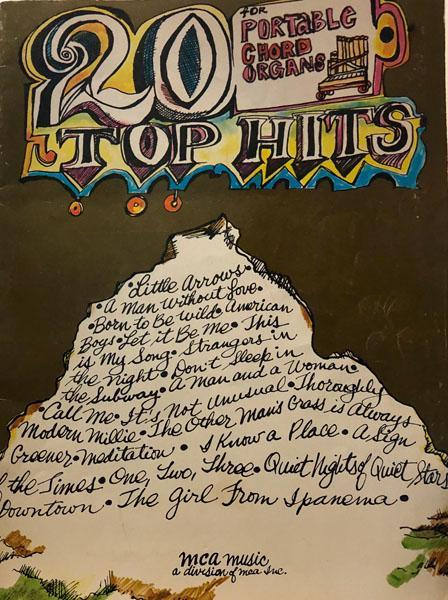 20
FOR
PORTABLE
CHORD
ORGANS
TOP HITS
• Little Arrows •
• A Man Without Love •
• Born to Be Wild • American
Boys • Let it Be Me • This
is My Song • Strangers in
the Night • Don't Sleep in
the Subway • A Man and a Woman •
• Call Me • It's Not Unusual • Thoroughly
Modern Millie • The Other Man's Grass is Always
Greener • Meditation • I Know a Place • A Sign
of the Times • One, Two, Three • Quiet Nights of Quiet Stars
Downtown • The Girl From Ipanema •
mca music
a division of mca Inc.